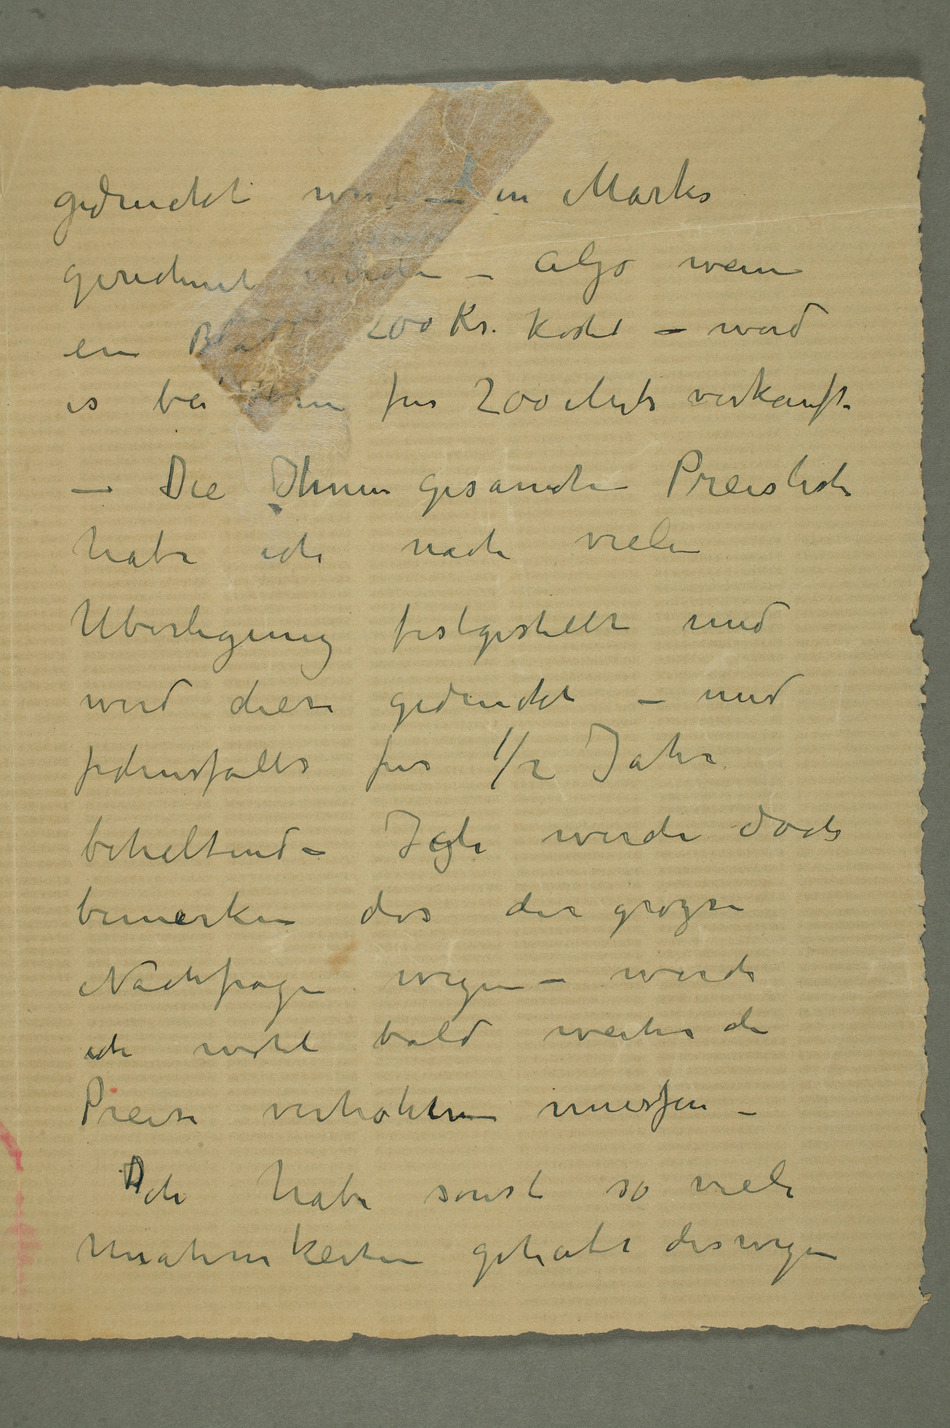 gedruckt wird – in Marks
gerechnet werden – also wenn
ein Blatt 200 Kr. kostet – wird
es bei Ihnen für 200 Mark verkauft
– Die Ihnen gesandte Preisliste
habe ich nach vielen
Überlegung festgestellt und
wird diese gedruckt – und
jedensfalls für 1/2 Jahr
behaltend – Ich werde doch
bemerken das der grozse
Nachfrage wegen – werde
ich wohl bald weiter die
Preise verhöhen muessen –
Ich habe sonst so viele
gehabt deswegen